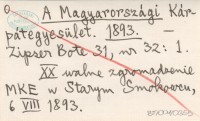 A Magyarországi Kár-
pátegyesület. 1893. —
Zipser Bote 31, nr 32: 1.
XX walne zgromadzenie
MKE w Starym Smokowcu,
6 VIII 1893.